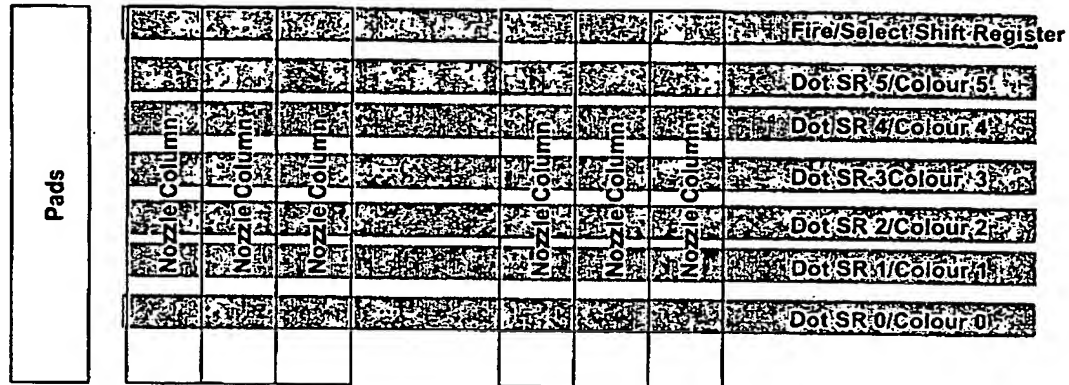 Pads
Nozzle Column
Nozzle Column
Nozzle Column
Nozzle Column
Nozzle Column
Nozzle Column
Fire/Select Shift Register
Dot SR 5/Colour 5
Dot SR 4/Colour 4
Dot SR 3Colour 3
Dot SR 2/Colour 2
Dot SR 1/Colour 1
Dot SR 0/Colour 0